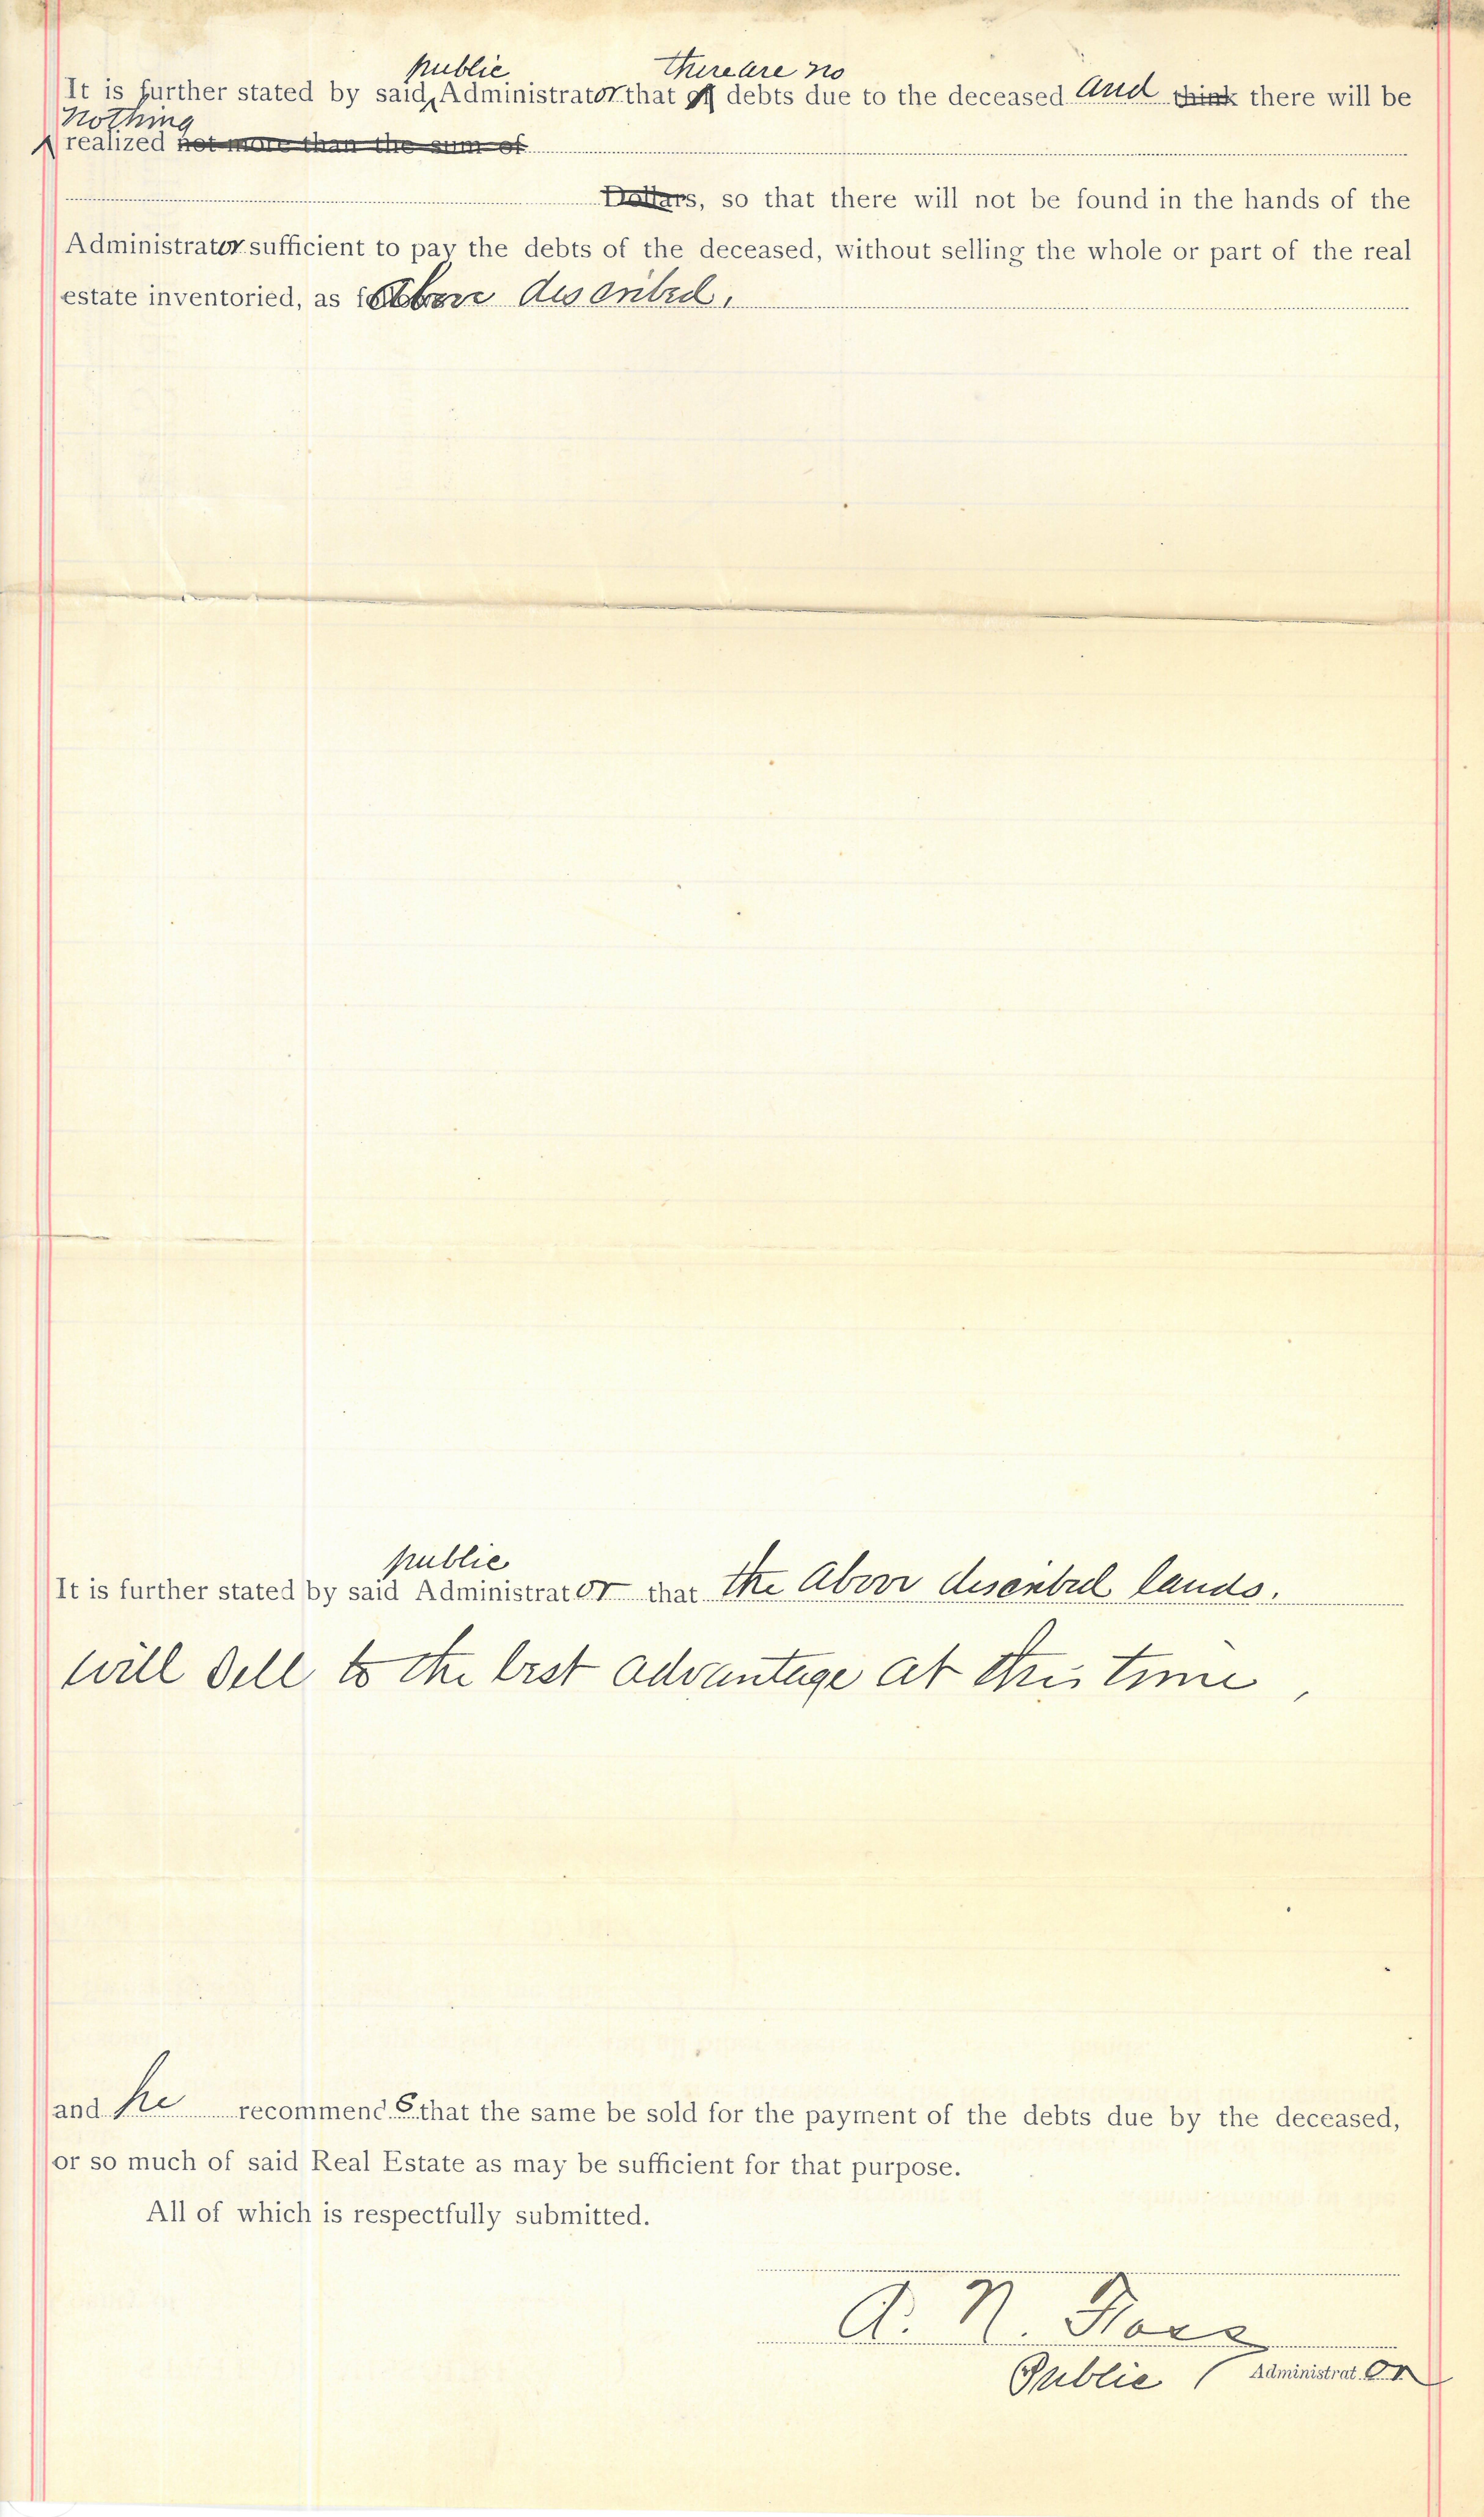 public there are no
It is further stated by said Administrator that of debts due to the deceased and think there will be
Nothing
realized not more than the sum of
Dollars, so that there will not be found in the hands of the
Administrator sufficient to pay the debts of the deceased, without selling the whole or part of the real
estate inventoried, as above described.
public
It is further stated by said Administrator that the above described lands.
will sell to the best advantage at this time,
and he recommends that the same be sold for the payment of the debts due by the deceased,
or so much of said Real Estate as may be sufficient for that purpose.
All of which is respectfully submitted.
A. N.
Public Administrator